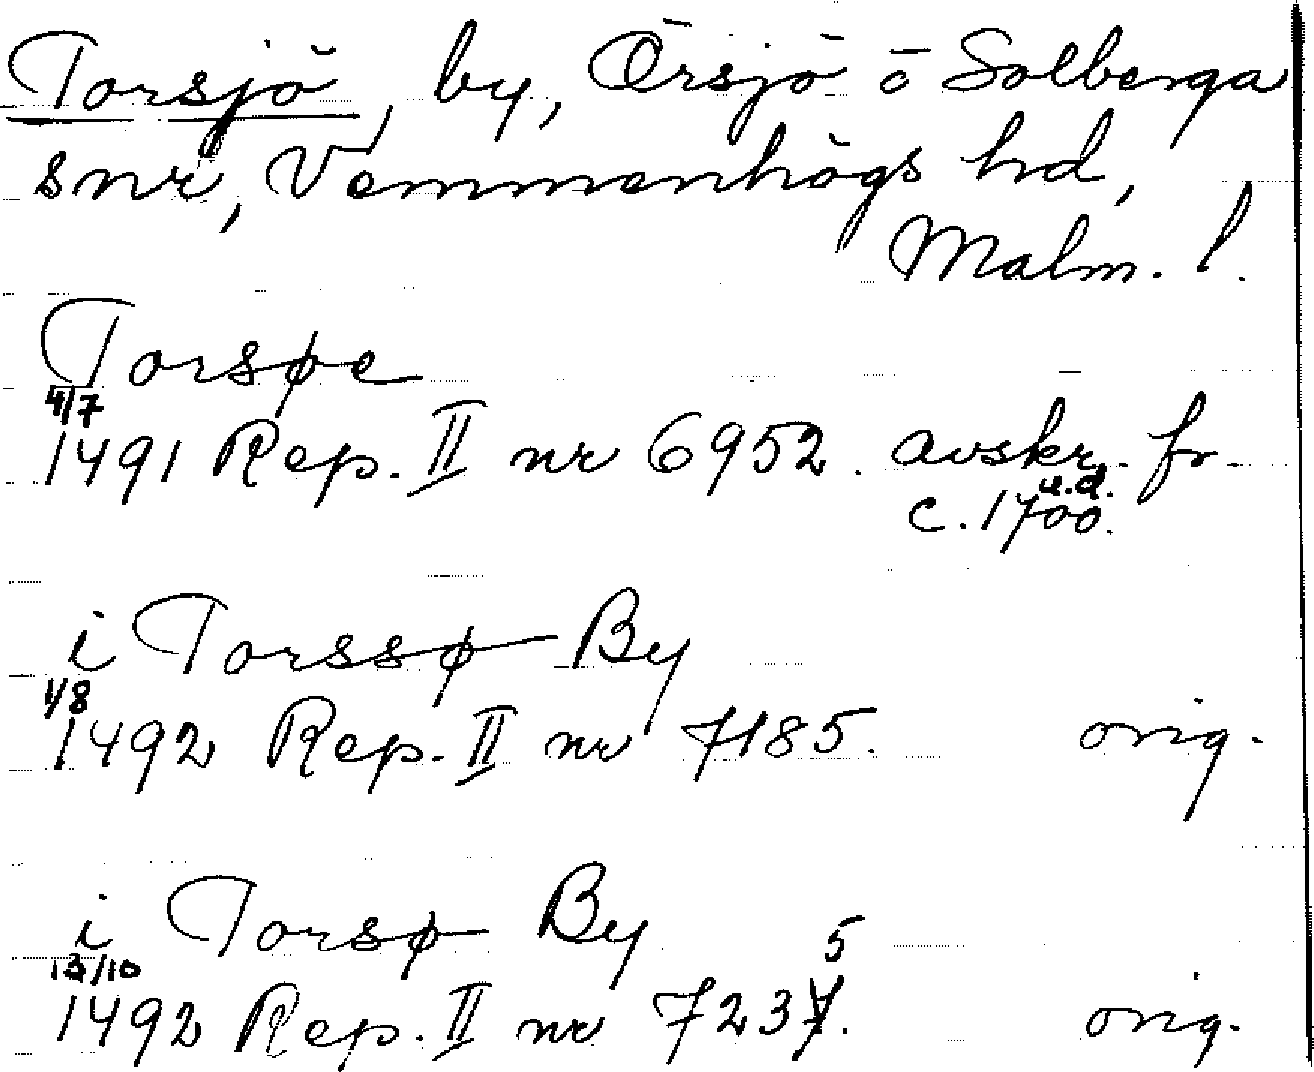 Torsjö, by, Örsjö o Solberga
snr, Vemmenhögs hd,
Malm. l.
Torsøe
4/7
1491 Rep. II nr 6952. avskr. fr
u.d.
c. 1700.
i Torssø By
1/8
1492 Rep. II nr 7185. orig.
i Torsø By
13/10 5
1492 Rep. II nr 7237. orig.